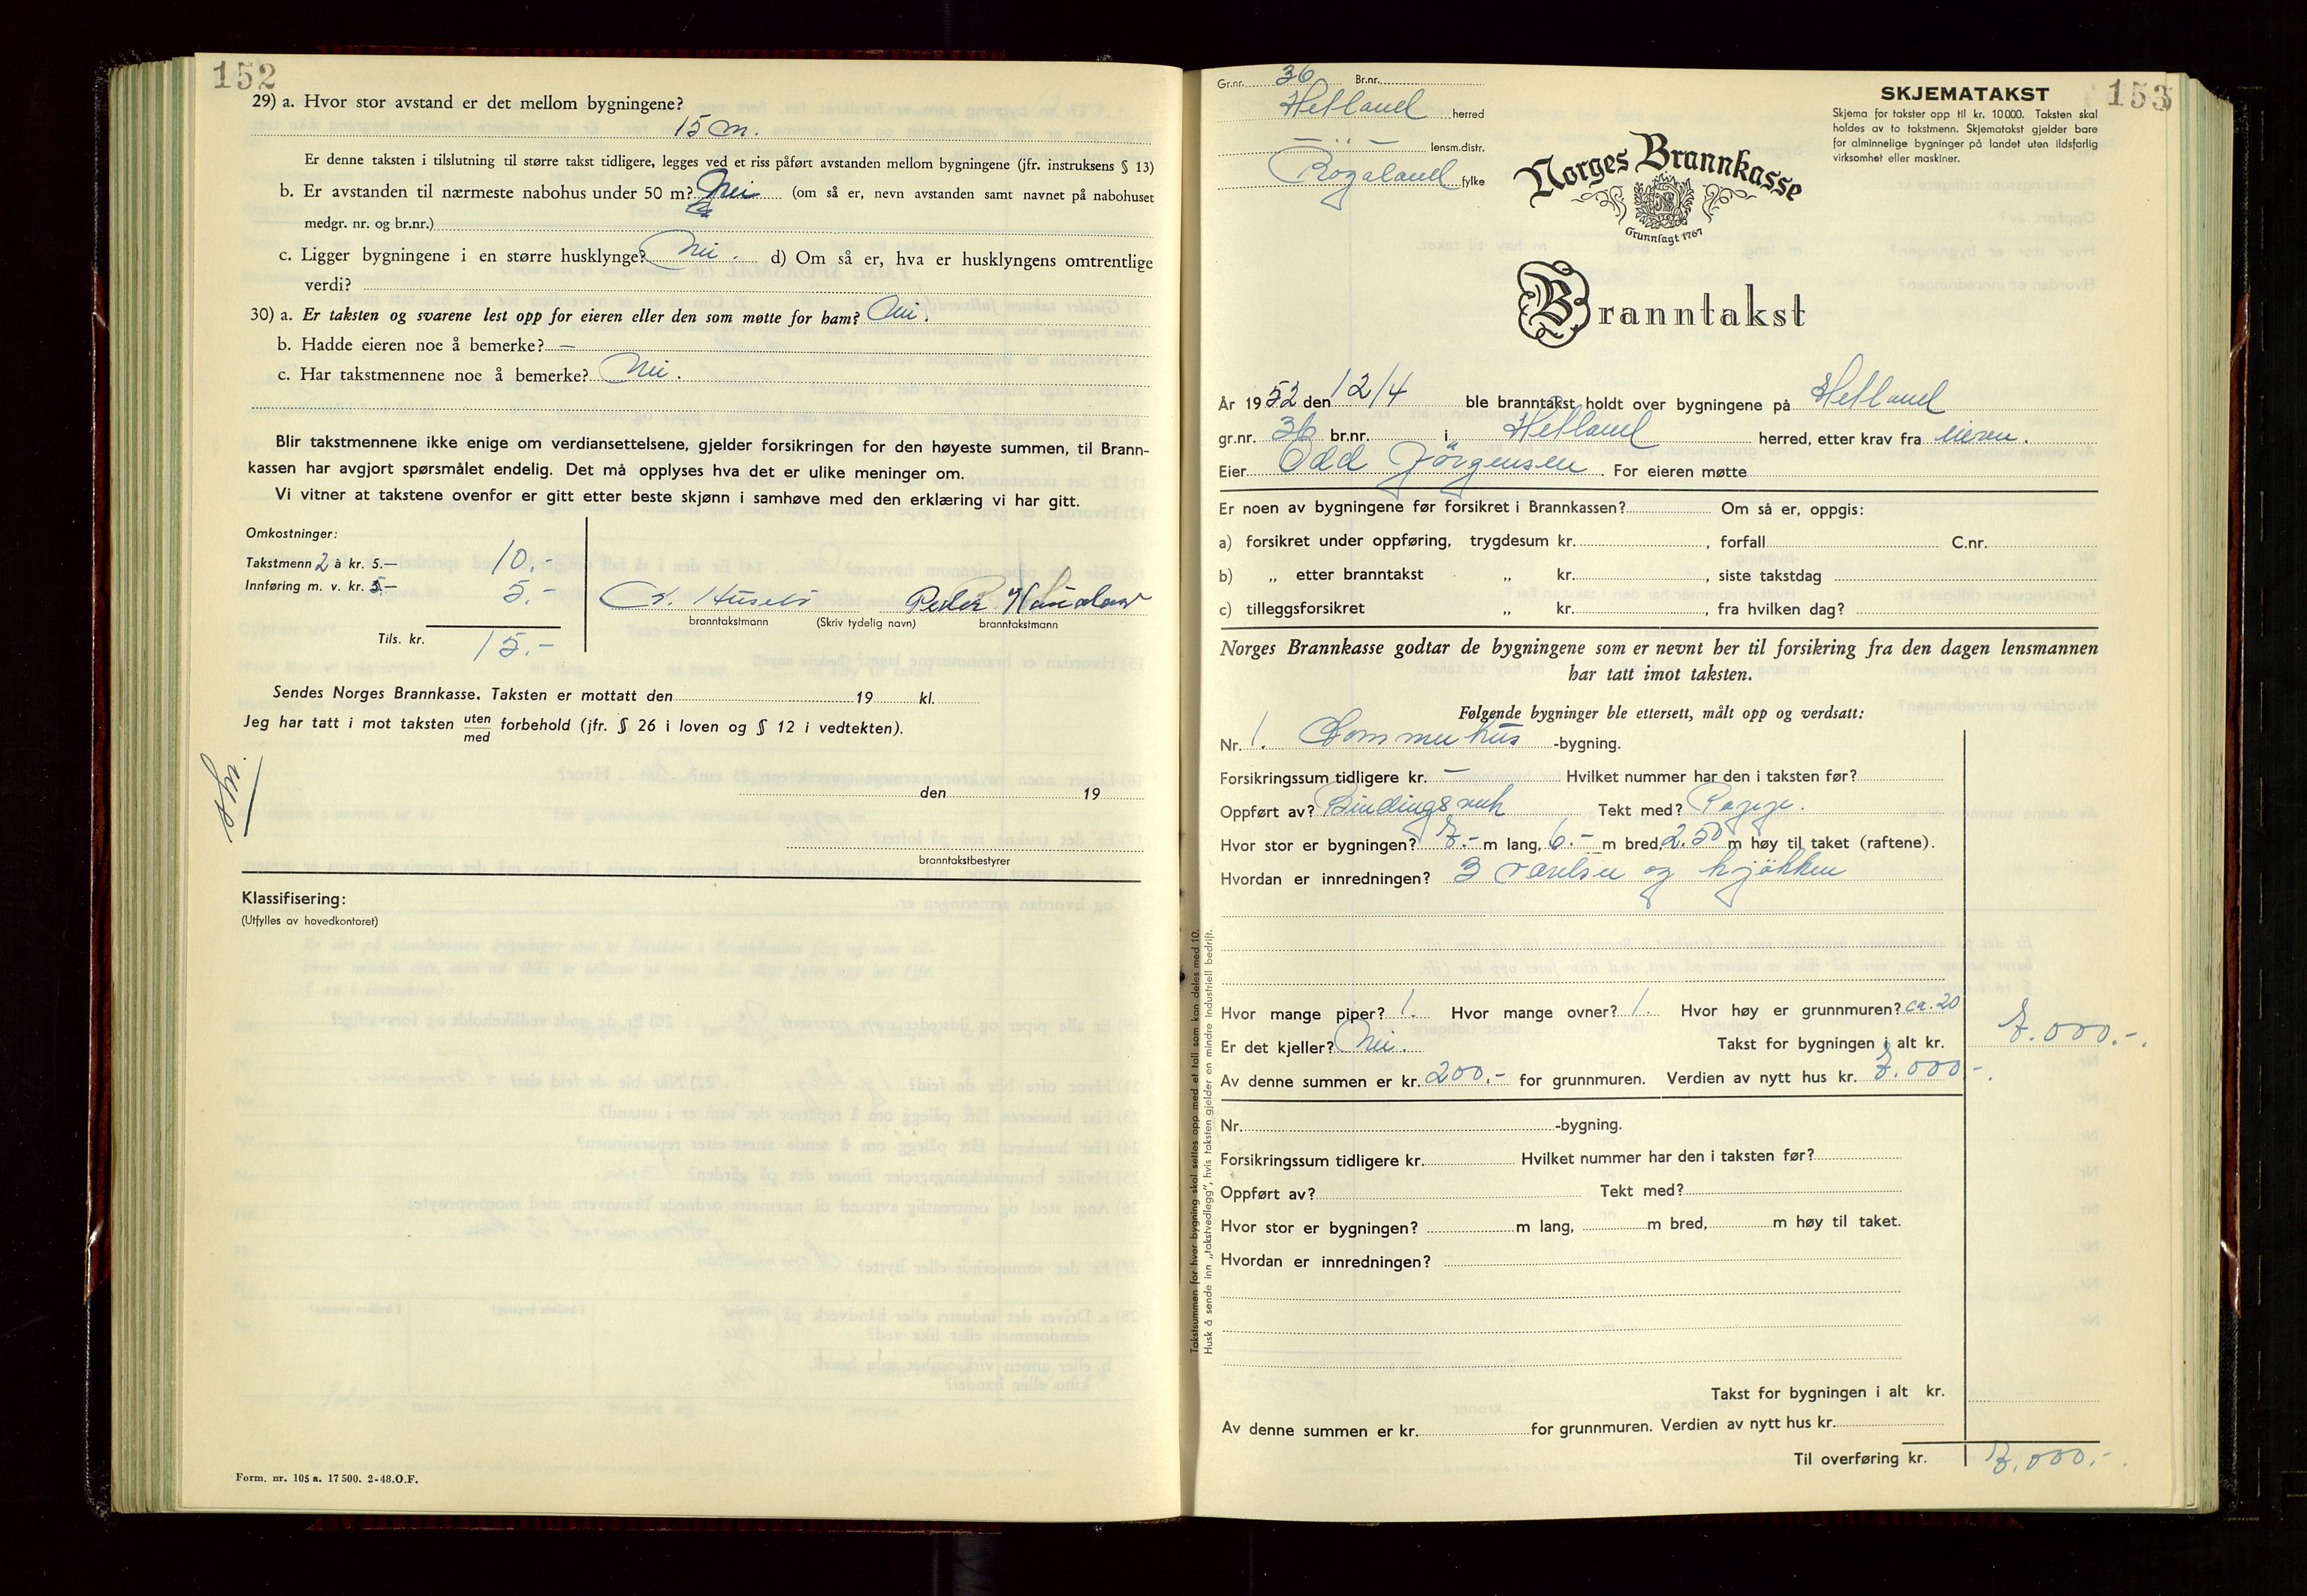 152
29) a. Hvor stor avstand er det mellom bygningene?
15 m.
Er denne taksten i tilslutning til større takst tidligere, legges ved et riss påført avstanden mellom bygningene (jfr. instruksens § 13)
b. Er avstanden til nærmeste nabohus under 50 m? Nei (om så er, nevn avstanden samt navnet på nabohuset
medgr. nr. og br.nr.)
c. Ligger bygningene i en større husklynge? Nei. d) Om så er, hva er husklyngens omtrentlige
verdi?
30) a. Er taksten og svarene lest opp for eieren eller den som møtte for ham? Nei.
b. Hadde eieren noe å bemerke? —
c. Har takstmennene noe å bemerke? Nei.
Blir takstmennene ikke enige om verdiansettelsene, gjelder forsikringen for den høyeste summen, til Brann-
kassen har avgjort spørsmålet endelig. Det må opplyses hva det er ulike meninger om.
Vi vitner at takstene ovenfor er gitt etter beste skjønn i samhøve med den erklæring vi har gitt.
Omkostninger:
Takstmenn 2 à kr. 5.— 10.-
Innføring m. v. kr. 5.— 5.-
Tils. kr. 15.-
Peder
branntakstmann (Skriv tydelig navn) branntakstmann
Sendes Norges Brannkasse. Taksten er mottatt den 19 kl.
Jeg har tatt i mot taksten uten/med forbehold (jfr. § 26 i loven og § 12 i vedtekten).
den 19
branntakstbestyrer
Klassifisering:
(Utfylles av hovedkontoret)
Form. nr. 105 a. 17 500. 2-48.O.F.
153
Gr.nr. 36 Br.nr.
Hetland herred
— " — lensm.distr.
Rogaland fylke
SKJEMATAKST
Skjema for takster opp til kr. 10 000. Taksten skal
holdes av to takstmenn. Skjematakst gjelder bare
for alminnelige bygninger på landet uten ildsfarlig
virksomhet eller maskiner.
Norges Brannkasse
Grunnlagt 1767
Branntakst
År 1952 den 12/4 ble branntakst holdt over bygningene på Hetland
gr.nr. 36 br.nr. i Hetland herred, etter krav fra eieren.
Eier Odd Jörgensen. For eieren møtte
Er noen av bygningene før forsikret i Brannkassen? Om så er, oppgis:
a) forsikret under oppføring, trygdesum kr. , forfall C.nr.
b) „ etter branntakst „ kr. , siste takstdag
c) tilleggsforsikret „ kr. , fra hvilken dag?
Norges Brannkasse godtar de bygningene som er nevnt her til forsikring fra den dagen lensmannen
har tatt imot taksten.
Følgende bygninger ble ettersett, målt opp og verdsatt:
Nr. 1. Sommerhus -bygning.
Forsikringssum tidligere kr. — Hvilket nummer har den i taksten før?
Oppført av? Bindingsverk Tekt med? Papp.
Hvor stor er bygningen? 7.- m lang, 6.- m bred, 2.50 m høy til taket (raftene).
Hvordan er innredningen? 3 værelser og kjökken
Hvor mange piper? 1. Hvor mange ovner? 1. Hvor høy er grunnmuren? ca. 20
Er det kjeller? Nei. Takst for bygningen i alt kr. 7.000.-.
Av denne summen er kr. 200.- for grunnmuren. Verdien av nytt hus kr. 7.000.-.
Nr. -bygning.
Forsikringssum tidligere kr. Hvilket nummer har den i taksten før?
Oppført av? Tekt med?
Hvor stor er bygningen? m lang, m bred, m høy til taket.
Hvordan er innredningen?
Takst for bygningen i alt kr.
Av denne summen er kr. for grunnmuren. Verdien av nytt hus kr.
Til overføring kr. 7.000.-.
Takstsummen for hver bygning skal settes opp med et tall som kan deles med 10.
Husk å sende inn „takstvedlegg", hvis taksten gjelder en mindre industriell bedrift.